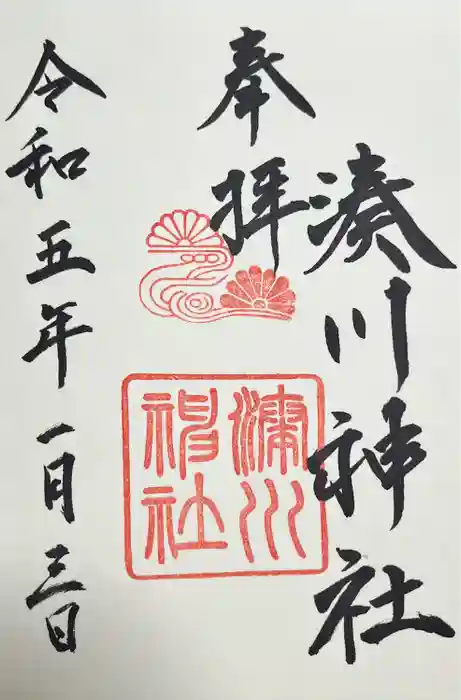 湊川神社
奉拝
湊川
神社
令和五年一月三日